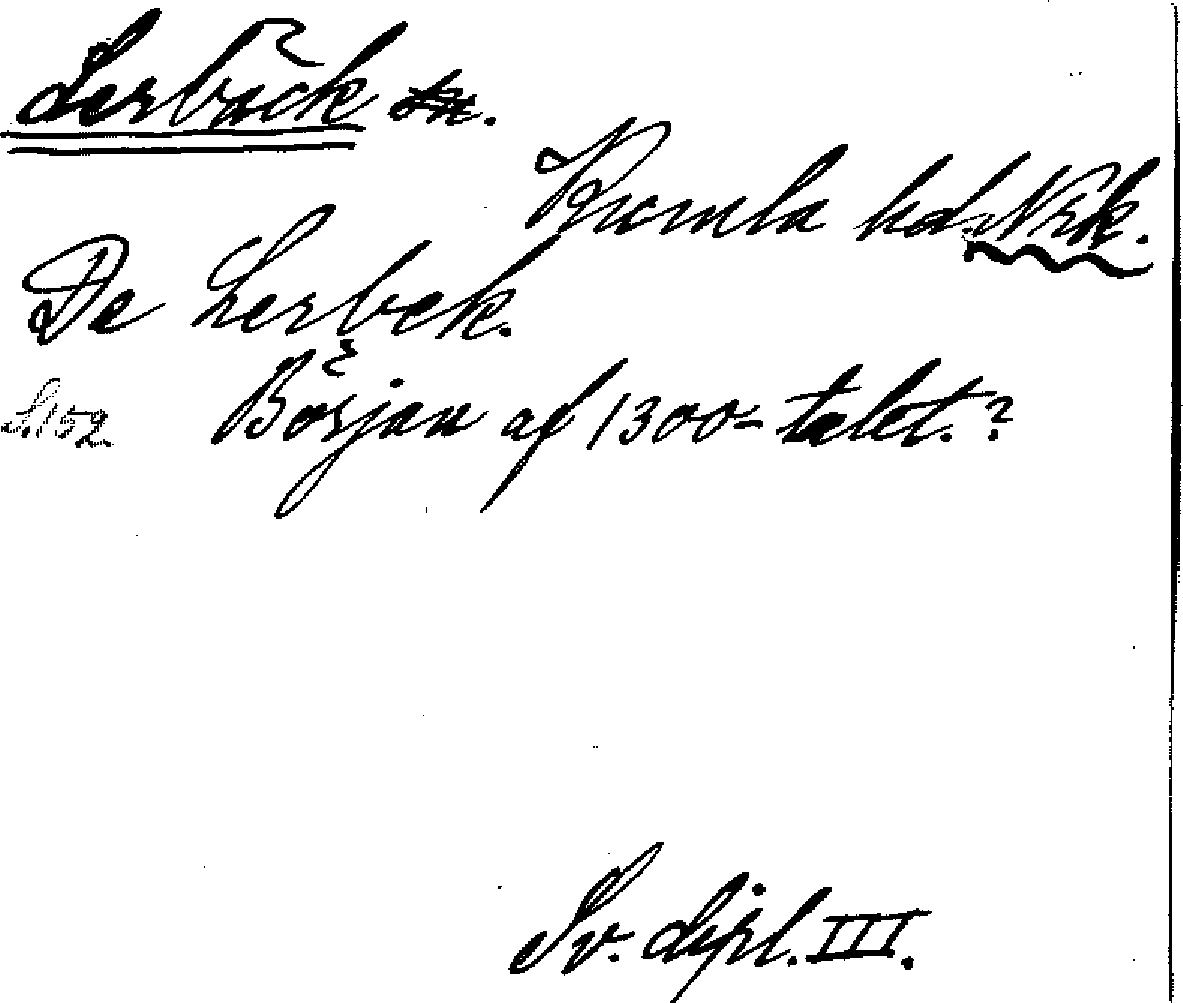 Lerbäck sn.
Kumla hd. Nrk.
De Lerbek.
S. 152 Början af 1300-talet.?
Sv. dipl. III.